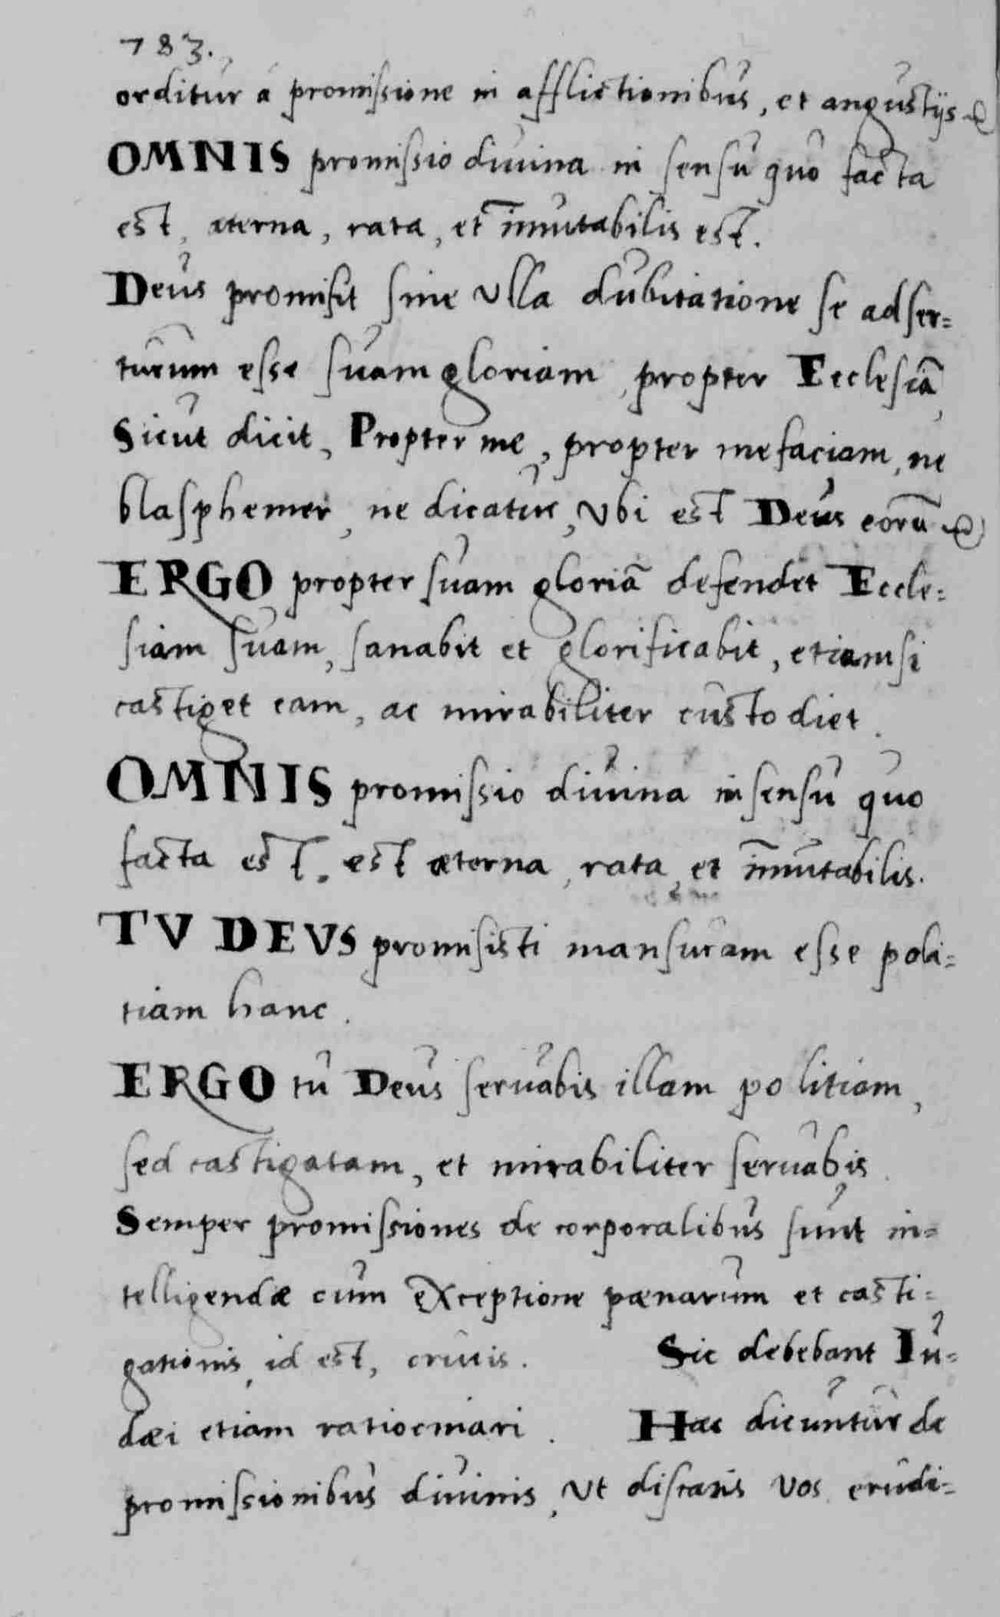 783.
orditur a promissione in afflictionibus, et angustijs
OMNIS promissio divina in sensu quo facta
est, æterna, rata, et im̄utabilis est.
Deus promisit sine ulla dubitatione se adser=
turum esse suam gloriam propter Ecclesiā,
Sicut dicit, Propter me, propter me faciam, ne
blasphemer, ne dicatur, Vbi est Deus eorū
ERGO propter suam gloriā defendet Eccle=
siam suam, sanabit et glorificabit, etiamsi
castiget eam, ac mirabiliter custodiet.
OMNIS promissio divina in sensu quo
facta est. est æterna, rata et im̄utabilis.
TV DEVS promisisti mansuram esse poli=
tiam hanc.
ERGO tu Deus servabis illam politiam,
sed castigatam, et mirabiliter servabis.
Semper promissiones de corporalibus sunt in=
telligendæ cum exceptione pænarum et casti=
gationis, id est, crucis. Sic debebant Iu=
dæi etiam ratiocinari. Hæc dicuntur de
promissionibus divinis, ut discatis vos erudi=